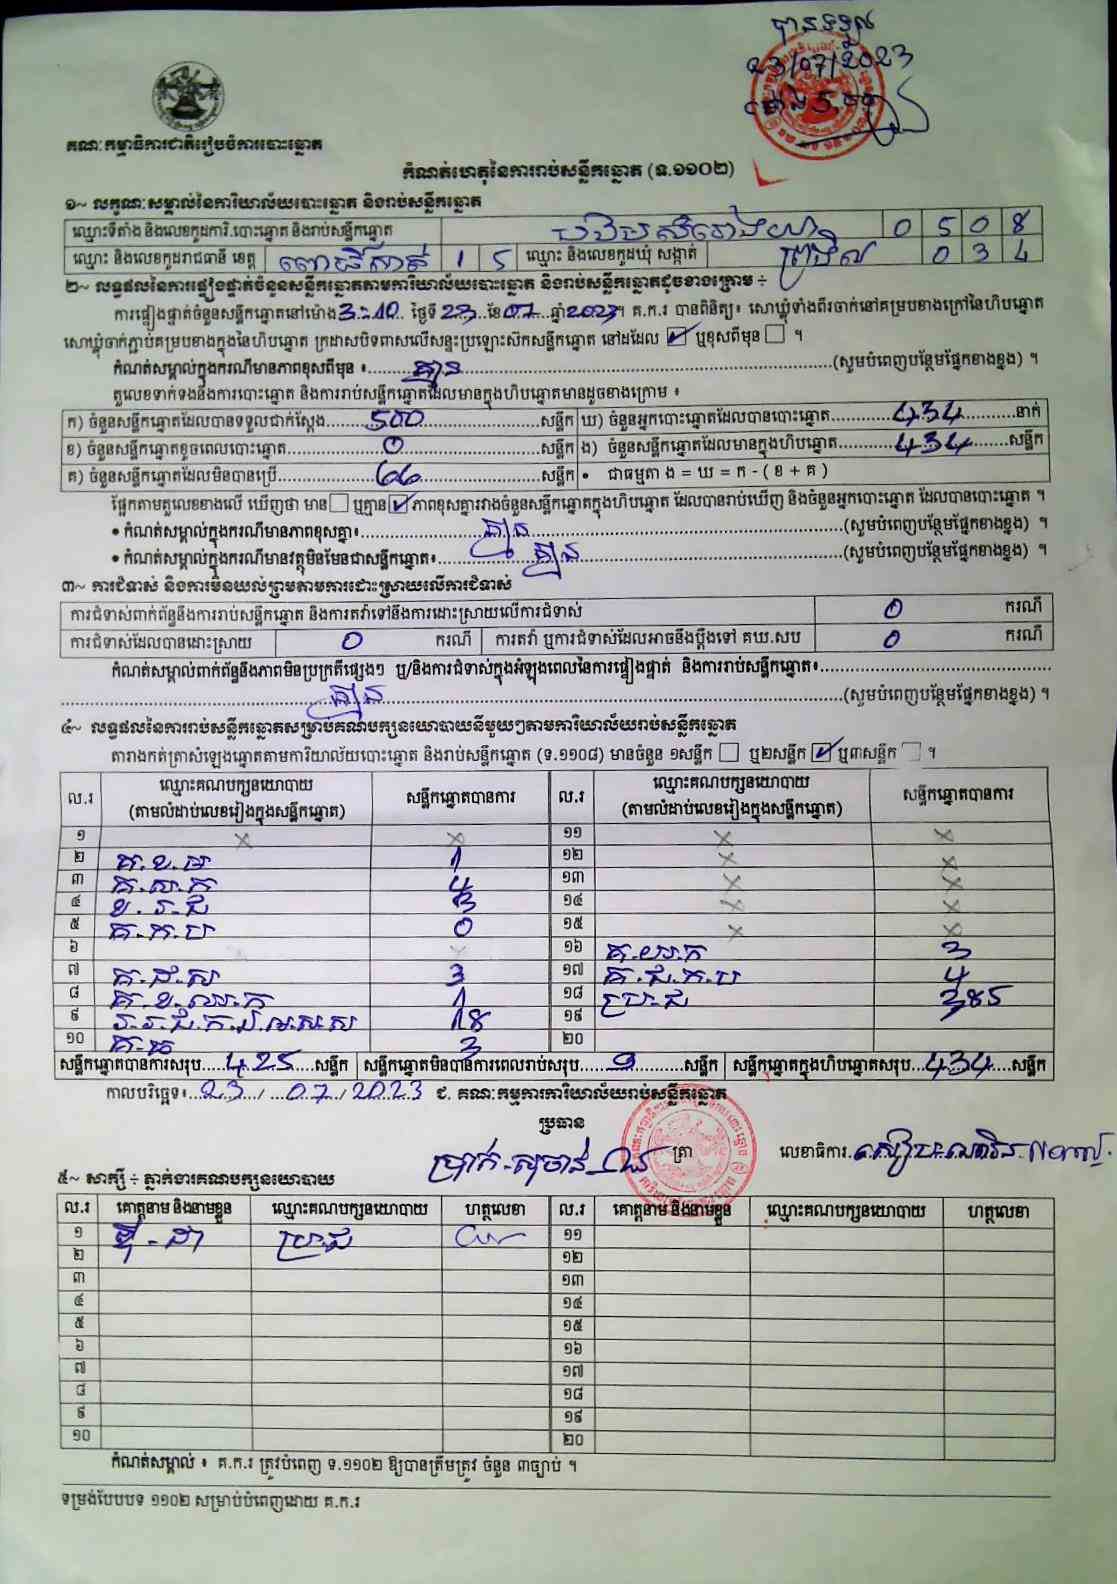 បានទទួល
23/07/2023
គណៈកម្មាធិការជាតិរៀបចំការបោះឆ្នោត
កំណត់ហេតុនៃការរាប់សន្លឹកឆ្នោត (ទ.១១០២)
១~ លក្ខណៈសម្គាល់នៃការិយាល័យបោះឆ្នោត និងរាប់សន្លឹកឆ្នោត
ឈ្មោះទីតាំង និងលេខកូដការិ.បោះឆ្នោត និងរាប់សន្លឹកឆ្នោត 0 5 0 8
ឈ្មោះ និងលេខកូដរាជធានី ខេត្ត ពោធិ៍សាត់ 1 5 ឈ្មោះ និងលេខកូដឃុំ សង្កាត់ 0 3 4
២~ លទ្ធផលនៃការផ្ទៀងផ្ទាត់ចំនួនសន្លឹកឆ្នោតតាមការិយាល័យបោះឆ្នោត និងរាប់សន្លឹកឆ្នោតដូចខាងក្រោម ÷
ការផ្ទៀងផ្ទាត់ចំនួនសន្លឹកឆ្នោតនៅម៉ោង 3:10 ថ្ងៃទី 23 ខែ 07 ឆ្នាំ 2023។ គ.ក.រ បានពិនិត្យ៖ សោឃ្លុំទាំងពីរចាក់នៅគម្របខាងក្រៅនៃហិបឆ្នោត
សោឃ្លុំចាក់ភ្ជាប់គម្របខាងក្នុងនៃហិបឆ្នោត ក្រដាសបិទពាសលើសន្ទះប្រឡោះស៊កសន្លឹកឆ្នោត នៅដដែល ☑ ឬខុសពីមុន ☐ ។
កំណត់សម្គាល់ក្នុងករណីមានភាពខុសពីមុន ៖ គ្មាន (សូមបំពេញបន្ថែមផ្នែកខាងខ្នង) ។
តួលេខទាក់ទងនឹងការបោះឆ្នោត និងការរាប់សន្លឹកឆ្នោតដែលមានក្នុងហិបឆ្នោតមានដូចខាងក្រោម ៖
ក) ចំនួនសន្លឹកឆ្នោតដែលបានទទួលជាក់ស្តែង 500 សន្លឹក ឃ) ចំនួនអ្នកបោះឆ្នោតដែលបានបោះឆ្នោត 434 នាក់
ខ) ចំនួនសន្លឹកឆ្នោតខូចពេលបោះឆ្នោត 0 សន្លឹក ង) ចំនួនសន្លឹកឆ្នោតដែលមានក្នុងហិបឆ្នោត 434 សន្លឹក
គ) ចំនួនសន្លឹកឆ្នោតដែលមិនបានប្រើ 66 សន្លឹក • ជាធម្មតា ង = ឃ = ក - ( ខ + គ )
ផ្អែកតាមតួលេខខាងលើ ឃើញថា មាន ☐ ឬគ្មាន ☑ ភាពខុសគ្នារវាងចំនួនសន្លឹកឆ្នោតក្នុងហិបឆ្នោត ដែលបានរាប់ឃើញ និងចំនួនអ្នកបោះឆ្នោត ដែលបានបោះឆ្នោត ។
• កំណត់សម្គាល់ក្នុងករណីមានភាពខុសគ្នា៖ គ្មាន (សូមបំពេញបន្ថែមផ្នែកខាងខ្នង) ។
• កំណត់សម្គាល់ក្នុងករណីមានវត្ថុមិនមែនជាសន្លឹកឆ្នោត៖ គ្មាន (សូមបំពេញបន្ថែមផ្នែកខាងខ្នង) ។
៣~ ការជំទាស់ និងការមិនយល់ព្រមតាមការដោះស្រាយលើការជំទាស់
ការជំទាស់ពាក់ព័ន្ធនឹងការរាប់សន្លឹកឆ្នោត និងការតវ៉ាទៅនឹងការដោះស្រាយលើការជំទាស់ 0 ករណី
ការជំទាស់ដែលបានដោះស្រាយ 0 ករណី ការតវ៉ា ឬការជំទាស់ដែលអាចនឹងប្តឹងទៅ គឃ.សប 0 ករណី
កំណត់សម្គាល់ពាក់ព័ន្ធនឹងភាពមិនប្រក្រតីផ្សេងៗ ឬ/និងការជំទាស់ក្នុងអំឡុងពេលនៃការផ្ទៀងផ្ទាត់ និងការរាប់សន្លឹកឆ្នោត៖
គ្មាន (សូមបំពេញបន្ថែមផ្នែកខាងខ្នង) ។
៤~ លទ្ធផលនៃការរាប់សន្លឹកឆ្នោតសម្រាប់គណបក្សនយោបាយនីមួយៗតាមការិយាល័យរាប់សន្លឹកឆ្នោត
តារាងកត់ត្រាសំឡេងឆ្នោតតាមការិយាល័យបោះឆ្នោត និងរាប់សន្លឹកឆ្នោត (ទ.១១០៨) មានចំនួន ១សន្លឹក ☐ ឬ២សន្លឹក ☑ ឬ៣សន្លឹក ☐ ។
ល.រ ឈ្មោះគណបក្សនយោបាយ (តាមលំដាប់លេខរៀងក្នុងសន្លឹកឆ្នោត) សន្លឹកឆ្នោតបានការ ល.រ ឈ្មោះគណបក្សនយោបាយ (តាមលំដាប់លេខរៀងក្នុងសន្លឹកឆ្នោត) សន្លឹកឆ្នោតបានការ
១ × × ១១ × ×
២ គ.ខ.ម 1 ១២ × ×
៣ គ.ស.ក 4 ១៣ × ×
៤ ខ.រ.ជ 3 ១៤ × ×
៥ គ.ក.ប 0 ១៥ × ×
៦ × ១៦ គ.យ.ក 3
៧ គ.ជ.ស 3 ១៧ គ.ជ.ក.ប 4
៨ គ.ខ.ឈ.ក 1 ១៨ ប្រ.ជ 385
៩ 18 ១៩
១០ គ.ធ 3 ២០
សន្លឹកឆ្នោតបានការសរុប 425 សន្លឹក សន្លឹកឆ្នោតមិនបានការពេលរាប់សរុប 9 សន្លឹក សន្លឹកឆ្នោតក្នុងហិបឆ្នោតសរុប 434 សន្លឹក
កាលបរិច្ឆេទ៖ 23 / 07 / 2023 ជ. គណៈកម្មការការិយាល័យរាប់សន្លឹកឆ្នោត
ប្រធាន
ប្រាក់ សុចាន់ ត្រា លេខាធិការ
៥~ សាក្សី ÷ ភ្នាក់ងារគណបក្សនយោបាយ
ល.រ គោត្តនាម និងនាមខ្លួន ឈ្មោះគណបក្សនយោបាយ ហត្ថលេខា ល.រ គោត្តនាម និងនាមខ្លួន ឈ្មោះគណបក្សនយោបាយ ហត្ថលេខា
១ ប្រជ ១១
២ ១២
៣ ១៣
៤ ១៤
៥ ១៥
៦ ១៦
៧ ១៧
៨ ១៨
៩ ១៩
១០ ២០
កំណត់សម្គាល់ ៖ គ.ក.រ ត្រូវបំពេញ ទ.១១០២ ឱ្យបានត្រឹមត្រូវ ចំនួន ៣ច្បាប់ ។
ទម្រង់បែបបទ ១១០២ សម្រាប់បំពេញដោយ គ.ក.រ